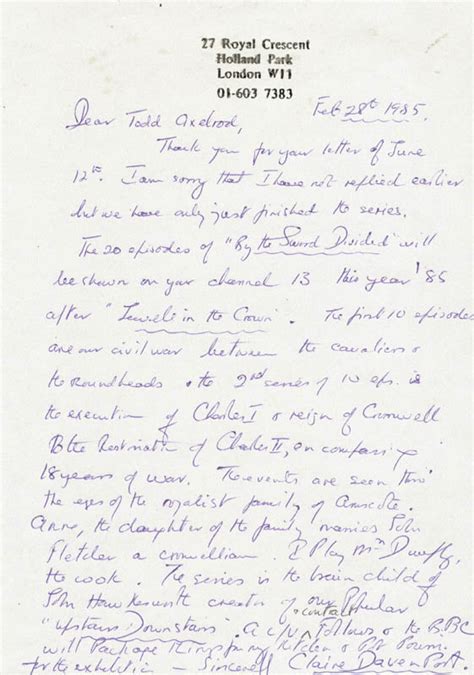 27 Royal Crescent
Holland Park
London W11
01-603 7383
Feb 28th 1985.
Dear Todd Axelrod,
Thank you for your letter of June
12th. I am sorry that I have not replied earlier
but we have only just finished the series.
The 20 episodes of "By the Sword Divided" will
be shown on your channel 13 this year '85
after "Jewel in the Crown". The first 10 episodes
are our civil war between the cavaliers &
the roundheads & the 2nd series of 10 eps. is
the execution of Charles I & reign of Cromwell
to the Restoration of Charles II, encompassing
18 years of war. The events are seen thro'
the eyes of the royalist family of Arnescote.
Anne, the daughter of the family marries John
Fletcher a cromwellian. I play Mrs Dumfry,
the cook. The series is the brain child of
John Hawkesworth creator of our popular
"Upstairs Downstairs". A c/v follows & the B.B.C
contact
will package things for my kitchen &
for the exhibition - Sincerely Claire Davenport.